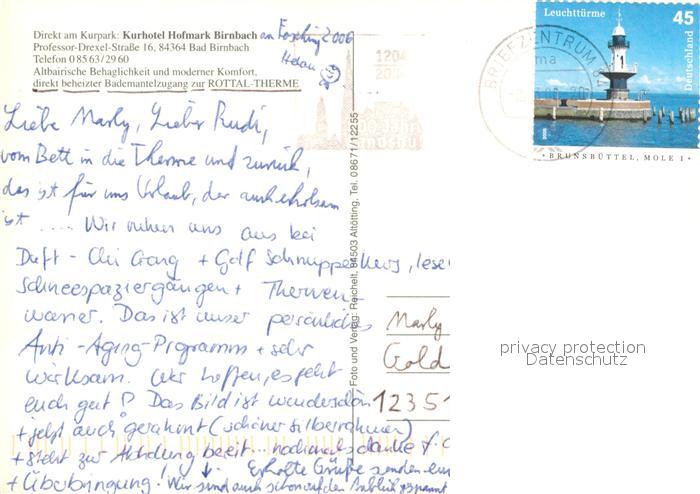 Direkt am Kurpark: Kurhotel Hofmark Birnbach
Professor-Drexel-Straße 16, 84364 Bad Birnbach
Telefon 0 85 63/29 60
Altbairische Behaglichkeit und moderner Komfort,
direkt beheizter Bademantelzugang zur ROTTAL-THERME
am Fasching 2006
Helau
Liebe Marly, Lieber Rudi,
vom Bett in die Therme und zurück,
das ist für uns Urlaub, der auch erholsam
ist .... Wir ruhen uns aus bei
Duft - Chi Gong + Golf Schnupperkurs, lese
Schneespaziergängen + Thermen-
wasser. Das ist unser persönliches
Anti-Aging-Programm + sehr
wirksam. Wir hoffen, es geht
euch gut!? Das Bild ist wunderschön
+ jetzt auch gerahmt (schöner Silberrahmen)
+ steht zur Abholung bereit... nochmals danke f. d
+ Überbringung! Erholte Grüße senden
Wir sind auch schon auf den Anblick gespannt
Foto und Verlag: Reichelt, 84503 Altötting, Tel. 08671/12255
Marly
Gold
12351
1204
BRIEFZENTRUM 84
Leuchttürme
45
Deutschland
BRUNSBÜTTEL, MOLE 1
privacy protection
Datenschutz